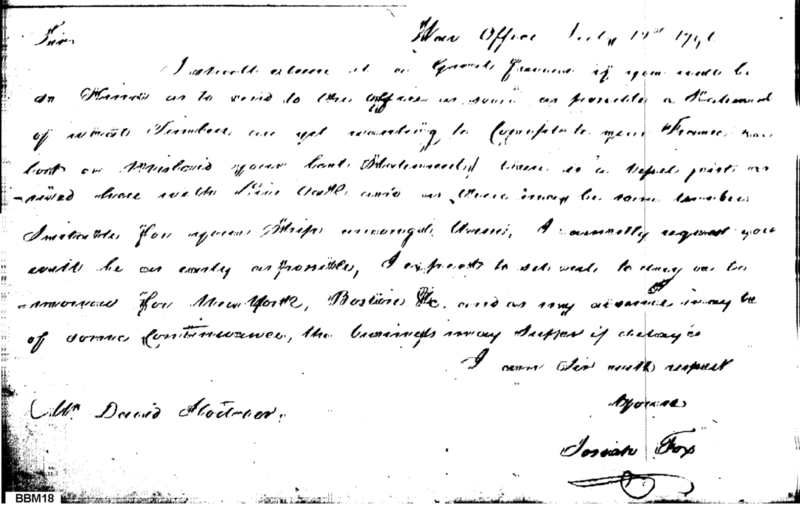 Sir, War Office July 12th 1796
I should esteem it a Great favour if you will be
so Kind as to send to the Office as soon as possible a Statement
of what Timber are yet wanting to Compleate your Frame, we
lost or Mislaid your last Statement, there is a Vessel just ar
rived here with Live Oak and as there may be some timber
Suitable for your Ship amongst them, I earnestly request you
will be as early as possible, I expect to set out to day or to
morrow for New York, Boston &c. and as my absence may be
of some Continuance, the business may suffer if delay'd
I am Sir with respect
Yours
Mr David Stodder.
Josiah Fox
BBM18